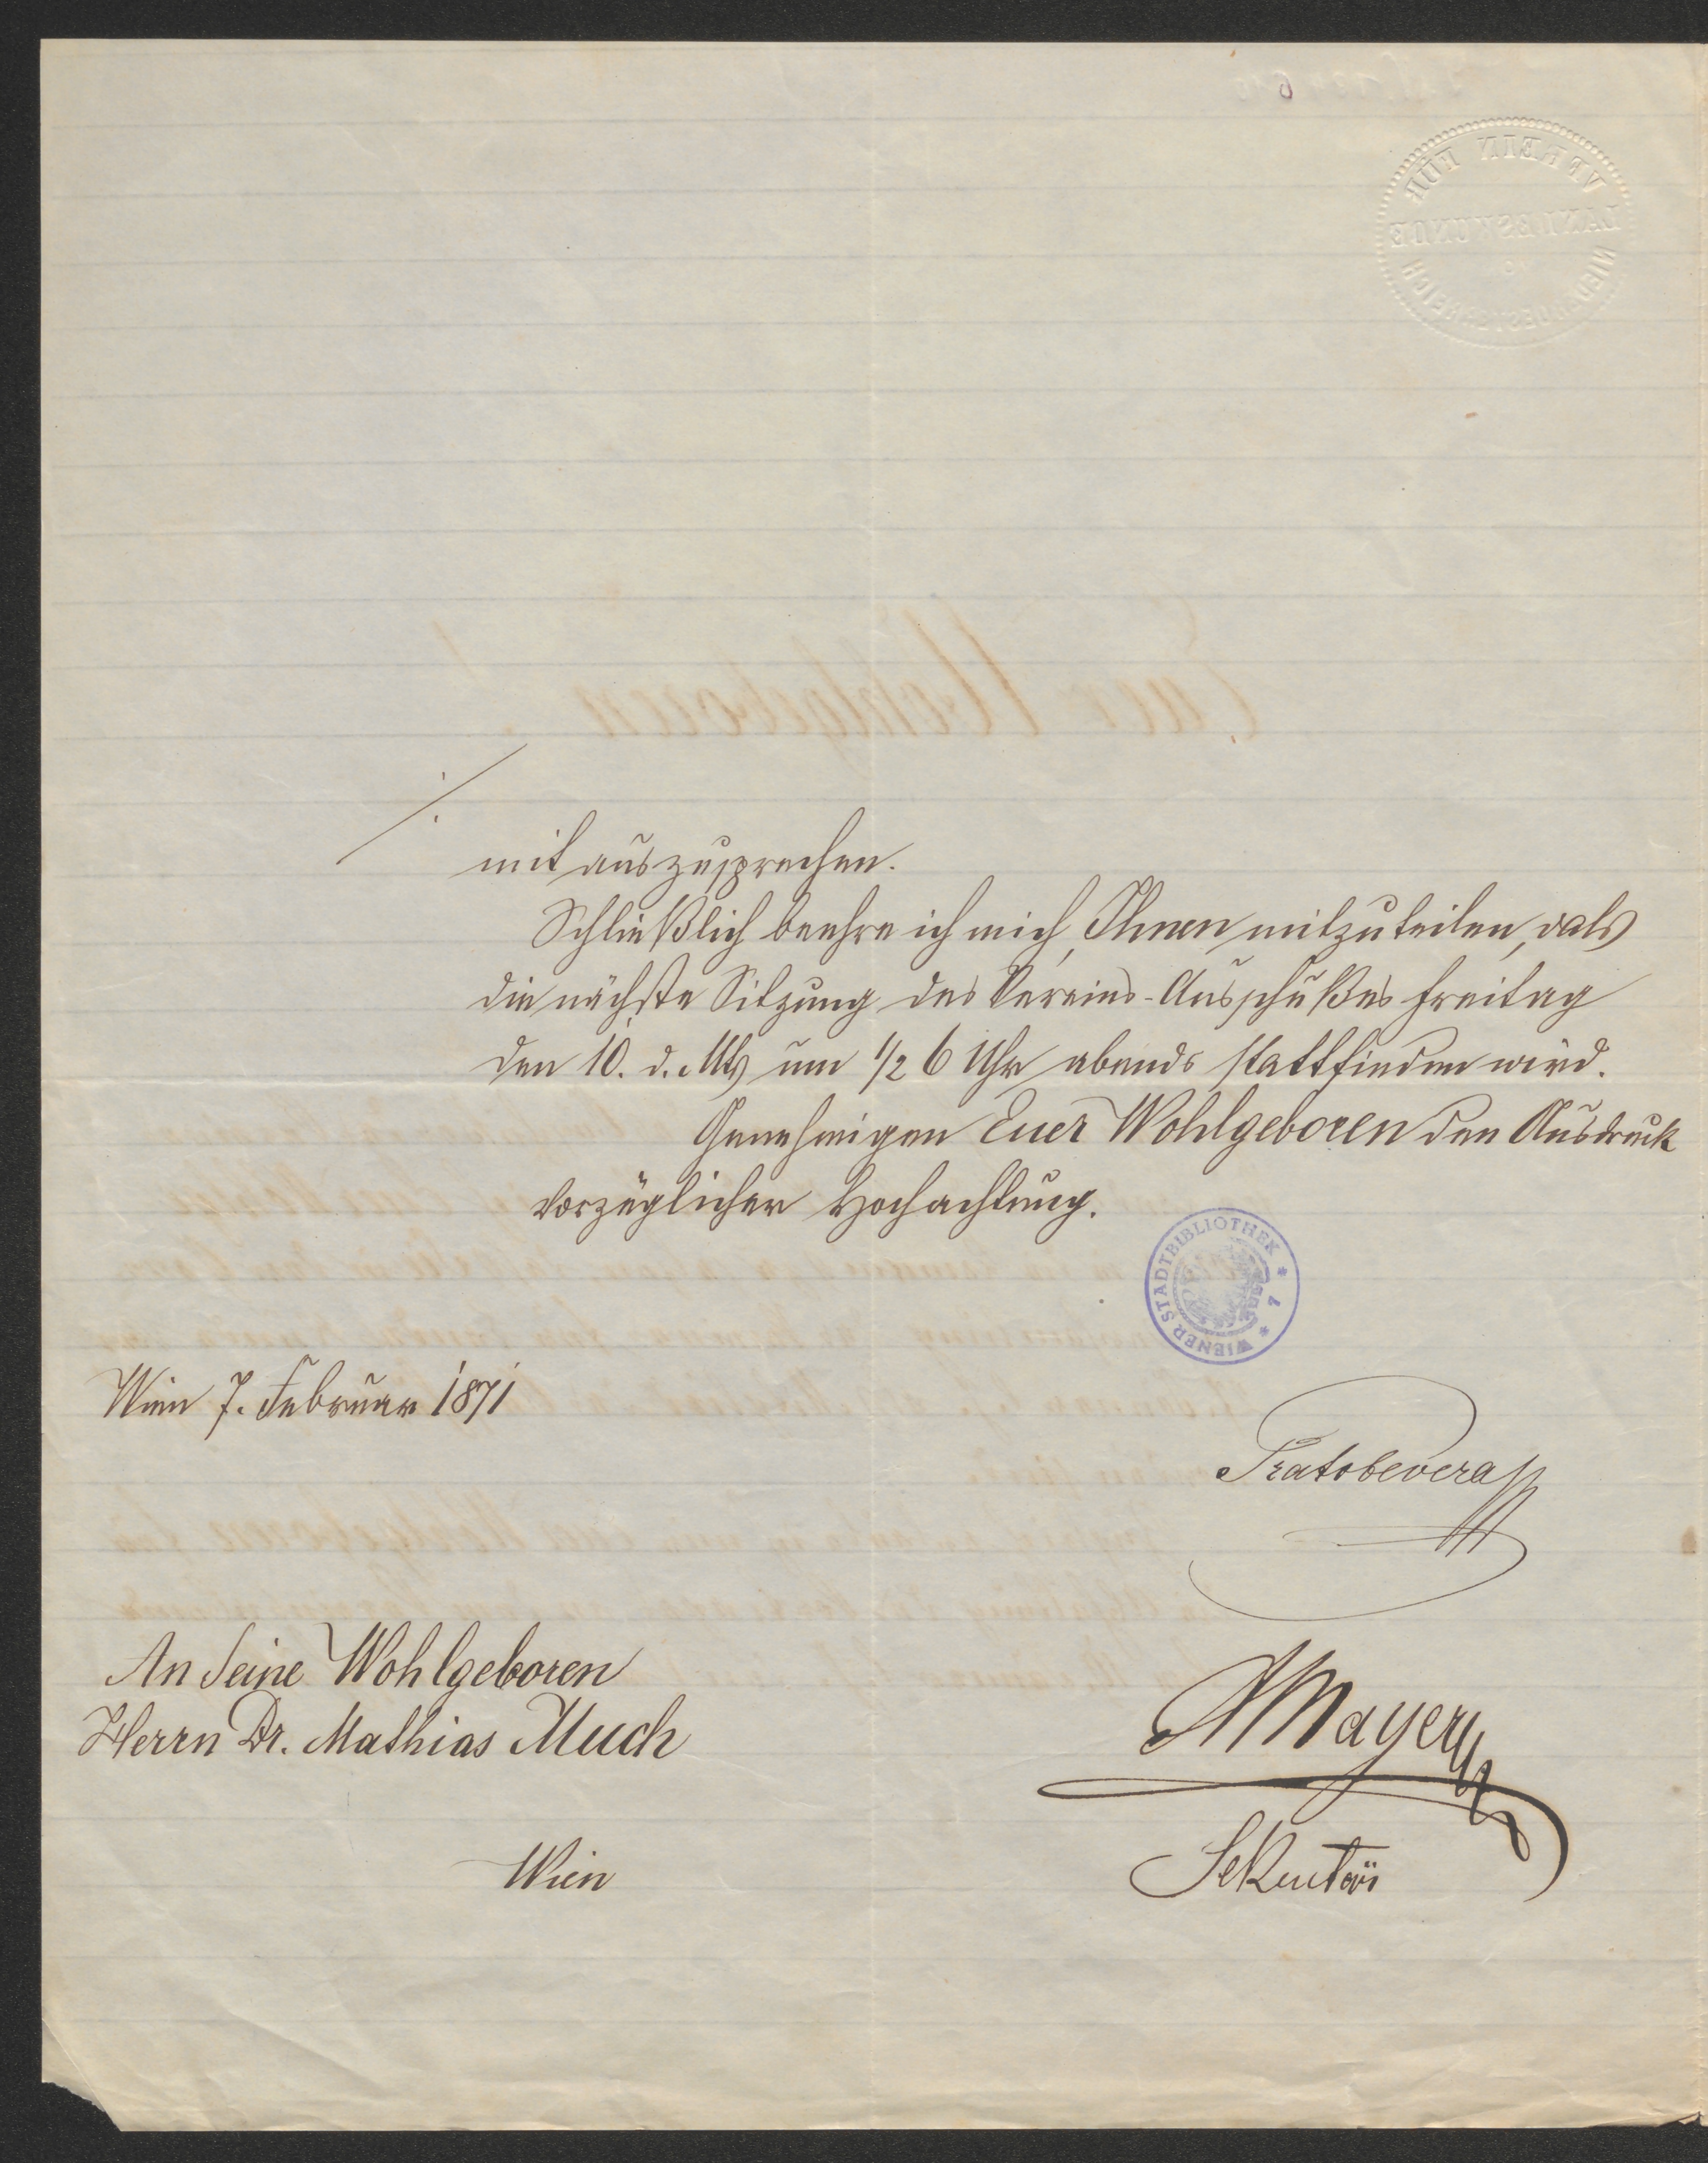 VEREIN FÜR
LANDESKUNDE
VON
NIEDERÖSTERREICH
Euer Wohlgeboren!
./.
mit auszusprechen.
Schließlich beehre ich mich, Ihnen mitzuteilen, dass
die nächste Sitzung des Vereins-Ausschußes Freitag
den 10. d. Mts um 1/2 6 Uhr abends stattfinden wird.
Genehmigen Euer Wohlgeboren den Ausdruck
vorzüglicher Hochachtung.
WIENER STADTBIBLIOTHEK * 7 *
Wien 7. Februar 1871
Pratobevera
An Seine Wohlgeboren
Herrn Dr. Mathias Much
AMayer
Wien
Sekretär